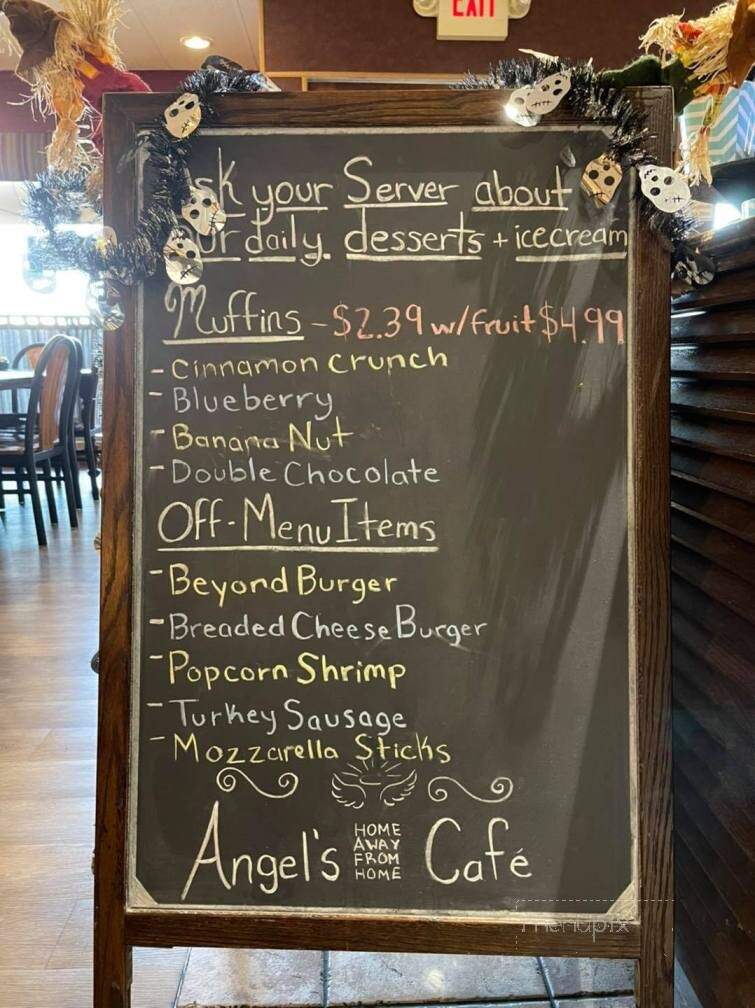 EXIT
sk your Server about
ur daily. desserts + icecream
Muffins - $2.39 w/fruit $4.99
- Cinnamon crunch
- Blueberry
- Banana Nut
- Double Chocolate
Off-Menu Items
- Beyond Burger
- Breaded Cheese Burger
- Popcorn Shrimp
- Turkey Sausage
- Mozzarella Sticks
Angel's HOME AWAY FROM HOME Café
menupix